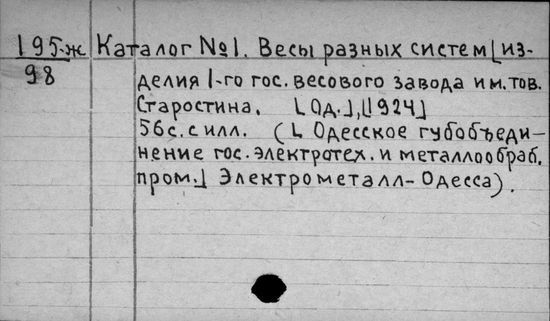 195-ж Каталог №1. Весы разных систем [из-
98 делия 1-го гос. весового завода им. тов.
Старостина. [Од.], [1924]
56с. с илл. ([Одесское губобъеди-
нение гос. электротех. и металлообраб.
пром.] Электрометалл-Одесса).